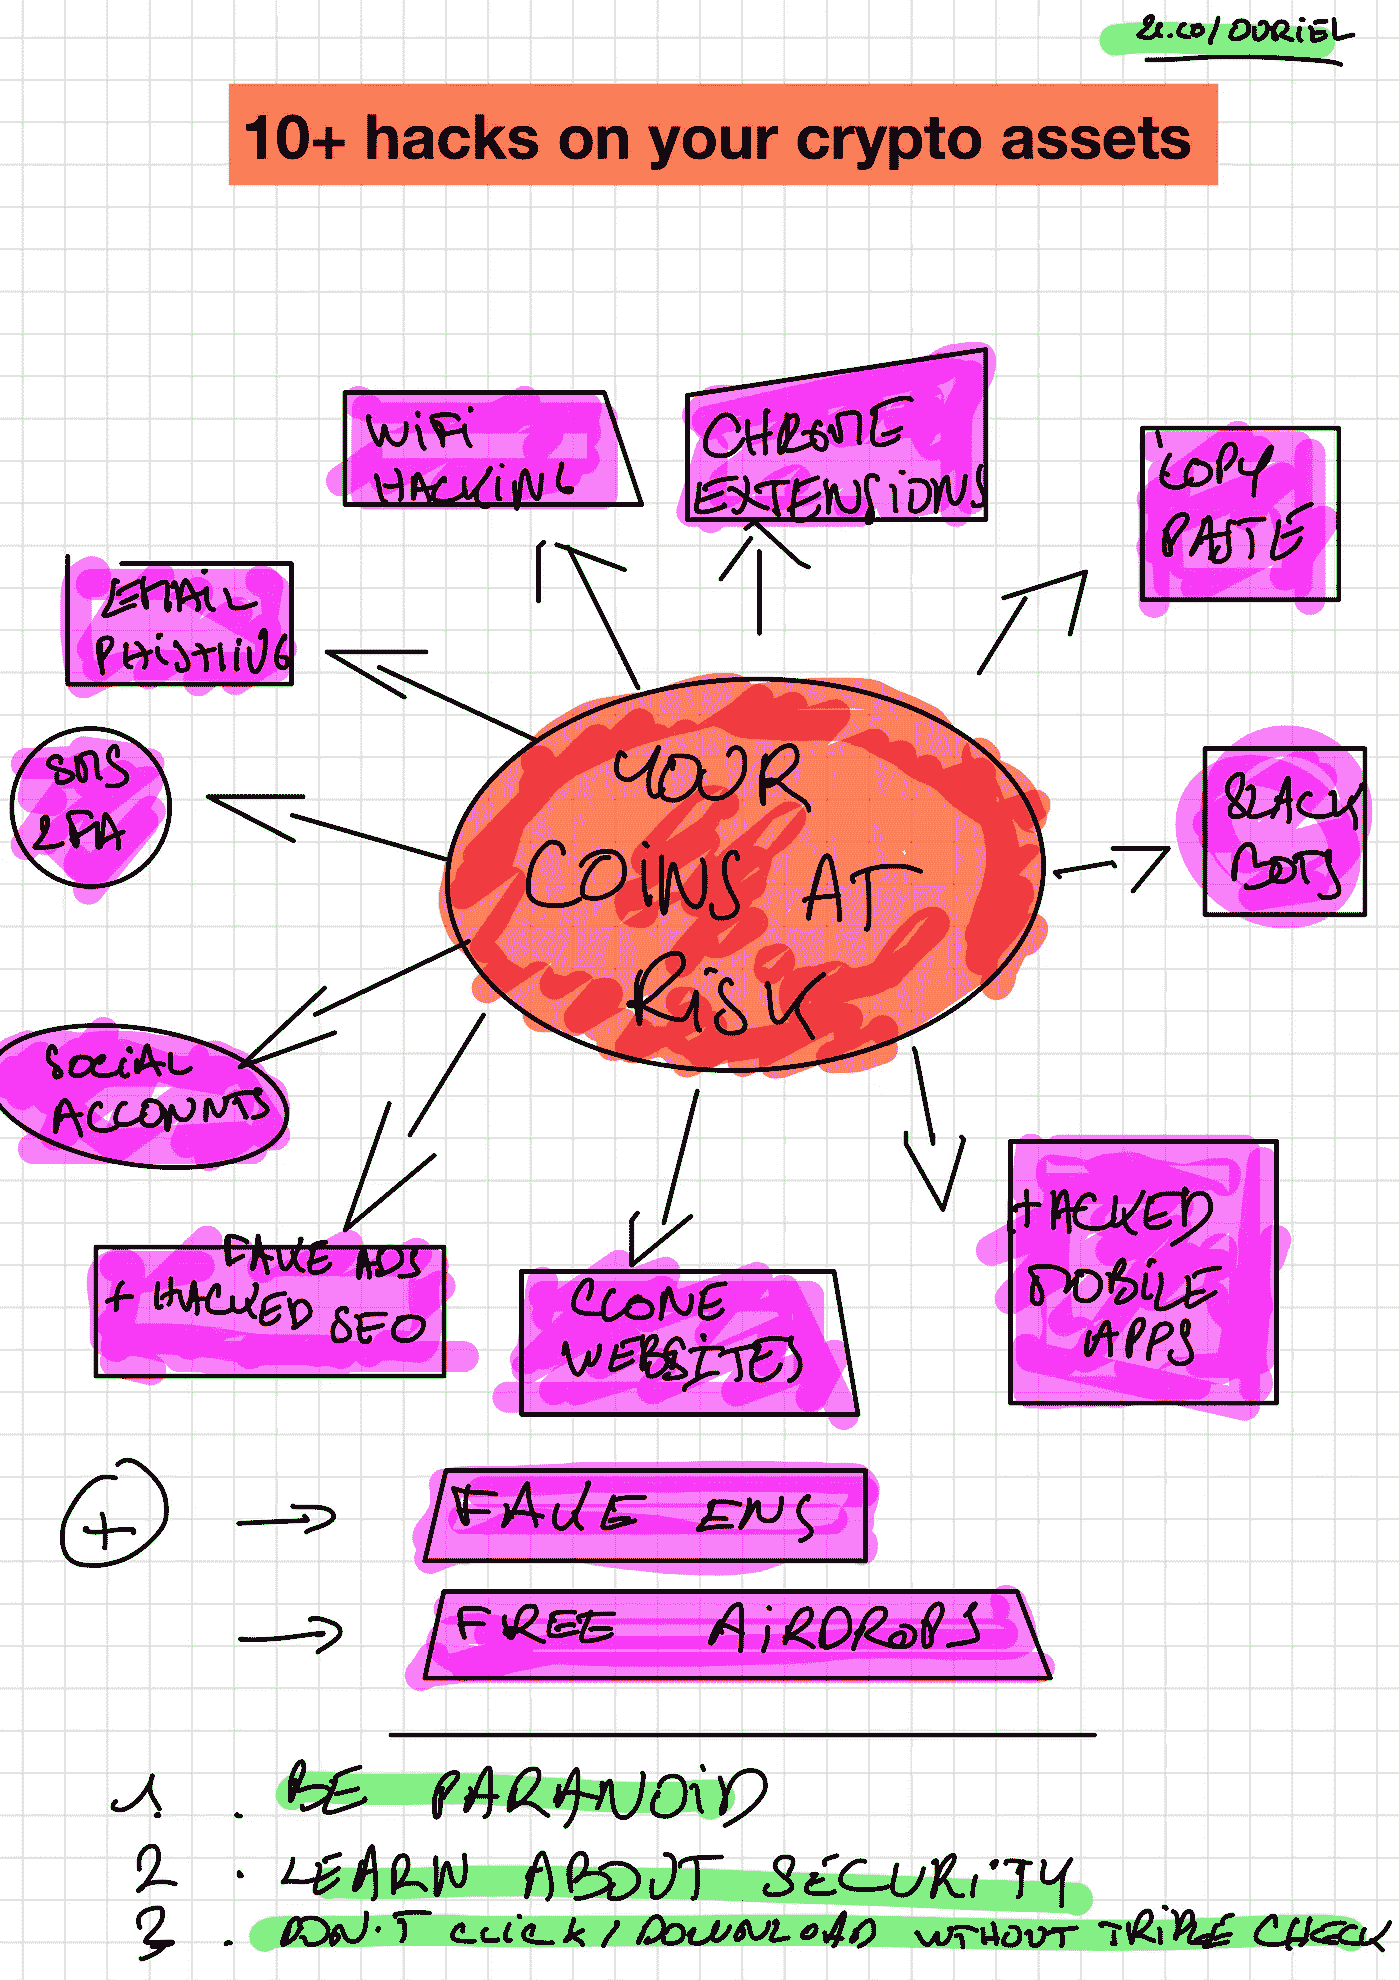 2i.co/OURIEL
10+ hacks on your crypto assets
WiFi
HACKING
CHROME
EXTENSIONS
COPY
PASTE
EMAIL
PHISHING
SMS
2FA
YOUR
COINS AT
RISK
SLACK
BOTS
SOCIAL
ACCOUNTS
FAKE ADS
+ HACKED SEO
CLONE
WEBSITES
HACKED
MOBILE
APPS
+ → FAKE ENS
→ FREE AiRDROPS
1. BE PARANOiD
2. LEARN ABOUT SECURiTY
3. DON'T CLiCK/DOWNLOAD WITHOUT TRIPLE CHECK